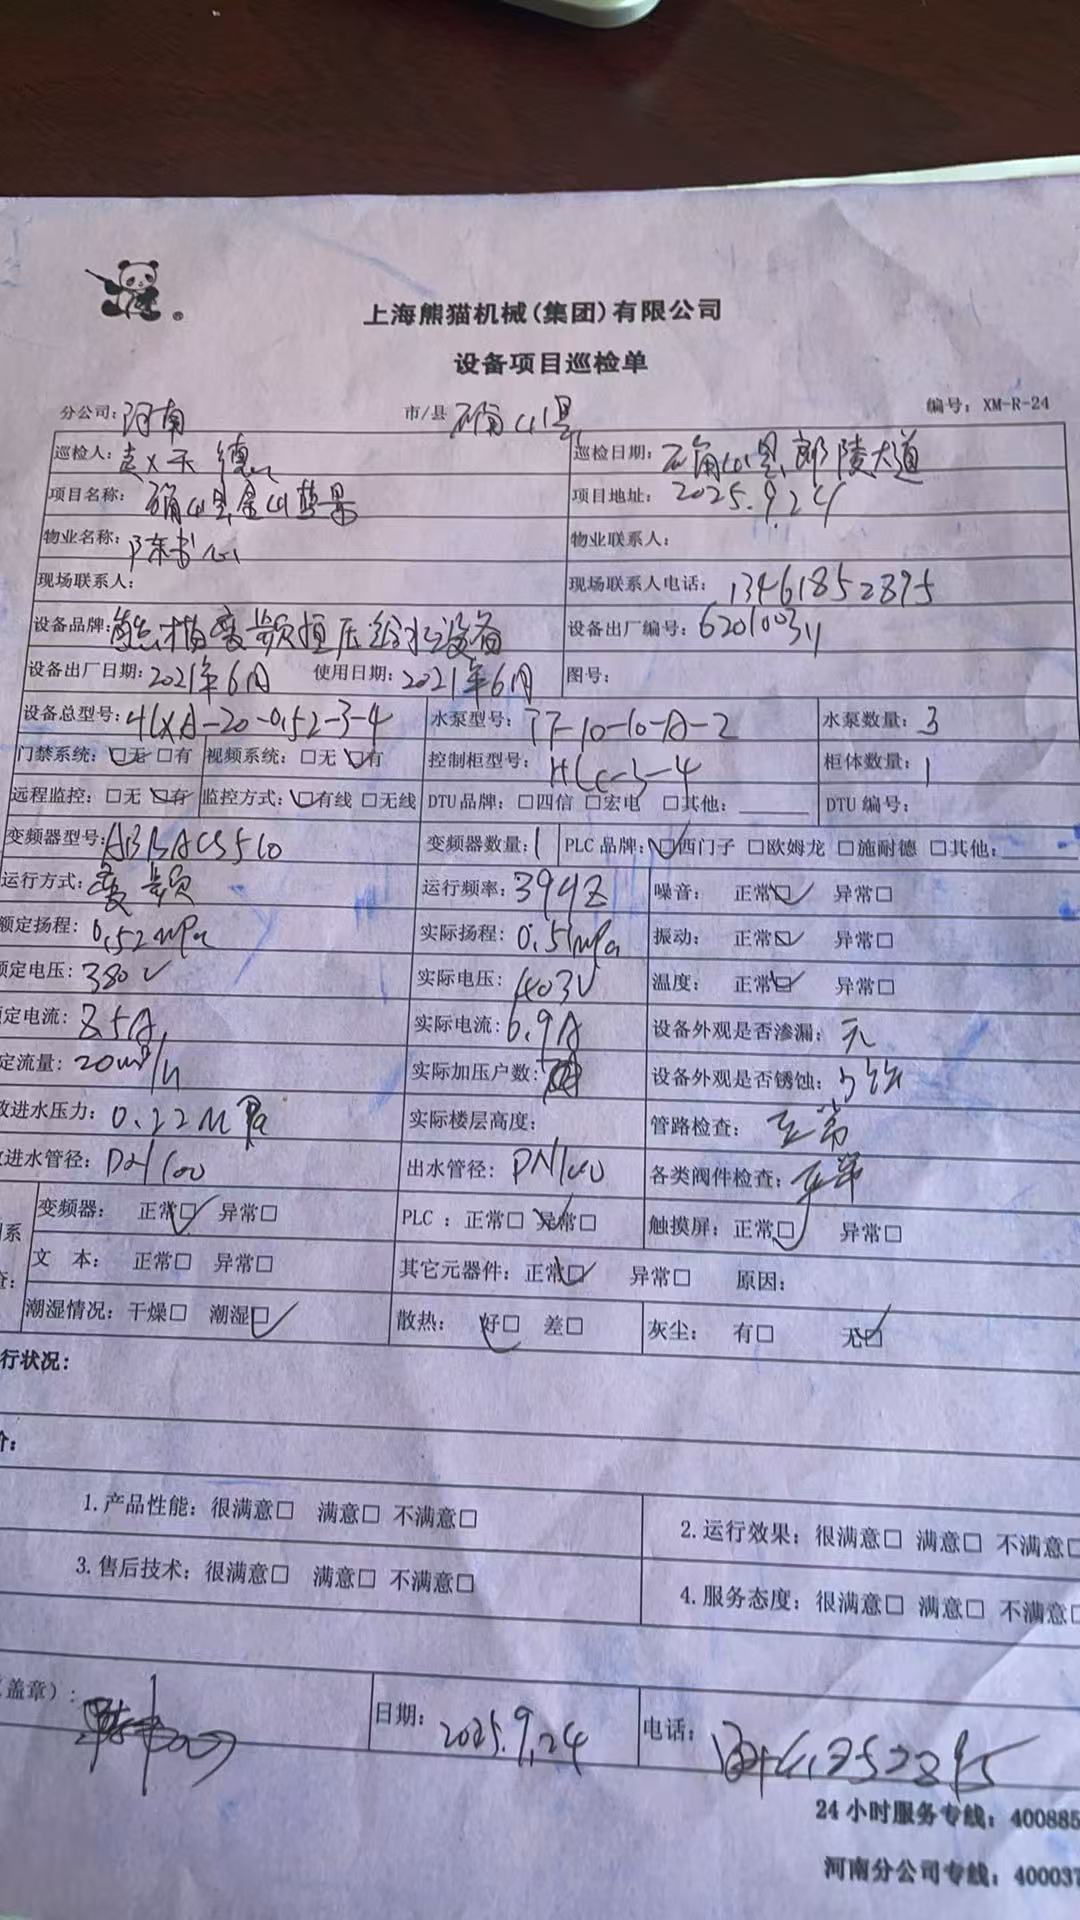 上海熊猫机械(集团)有限公司
设备项目巡检单
分公司: 河南 市/县 确山县 编号: XM-R-24
巡检人: 德 巡检日期: 确山县郎陵大道
项目名称: 确山县金山蓝景 项目地址: 2025.9.24
物业名称: 陈书心 物业联系人:
现场联系人: 现场联系人电话: 13461852895
设备品牌: 熊猫变频恒压给水设备 设备出厂编号: 62010031
设备出厂日期: 2021年6月 使用日期: 2021年6月 图号:
设备总型号: 4LXA-20-0.52-3-4 水泵型号: TF-10-10-A-2 水泵数量: 3
门禁系统: □无 □有 视频系统: □无 □有 控制柜型号: HLC-3-4 柜体数量: 1
远程监控: □无 □有 监控方式: □有线 □无线 DTU品牌: □四信 □宏电 □其他: DTU编号:
变频器型号: ABBACS510 变频器数量: 1 PLC品牌: □西门子 □欧姆龙 □施耐德 □其他:
运行方式: 变频 运行频率: 39HZ 噪音: 正常□ 异常□
额定扬程: 0.52MPa 实际扬程: 0.51MPa 振动: 正常□ 异常□
定电压: 380V 实际电压: 403V 温度: 正常□ 异常□
定电流: 8.5A 实际电流: 6.9A 设备外观是否渗漏: 无
定流量: 20m³/h 实际加压户数: 设备外观是否锈蚀:
进水压力: 0.22MPa 实际楼层高度: 管路检查: 正常
进水管径: DN100 出水管径: DN100 各类阀件检查: 正常
系 变频器: 正常□ 异常□ PLC: 正常□ 异常□ 触摸屏: 正常□ 异常□
文 本: 正常□ 异常□ 其它元器件: 正常□ 异常□ 原因:
潮湿情况: 干燥□ 潮湿□ 散热: 好□ 差□ 灰尘: 有□ 无□
行状况:
价:
1.产品性能: 很满意□ 满意□ 不满意□ 2.运行效果: 很满意□ 满意□ 不满意□
3.售后技术: 很满意□ 满意□ 不满意□ 4.服务态度: 很满意□ 满意□ 不满意□
(盖章): 日期: 2025.9.24 电话:
24小时服务专线: 400885
河南分公司专线: 400037